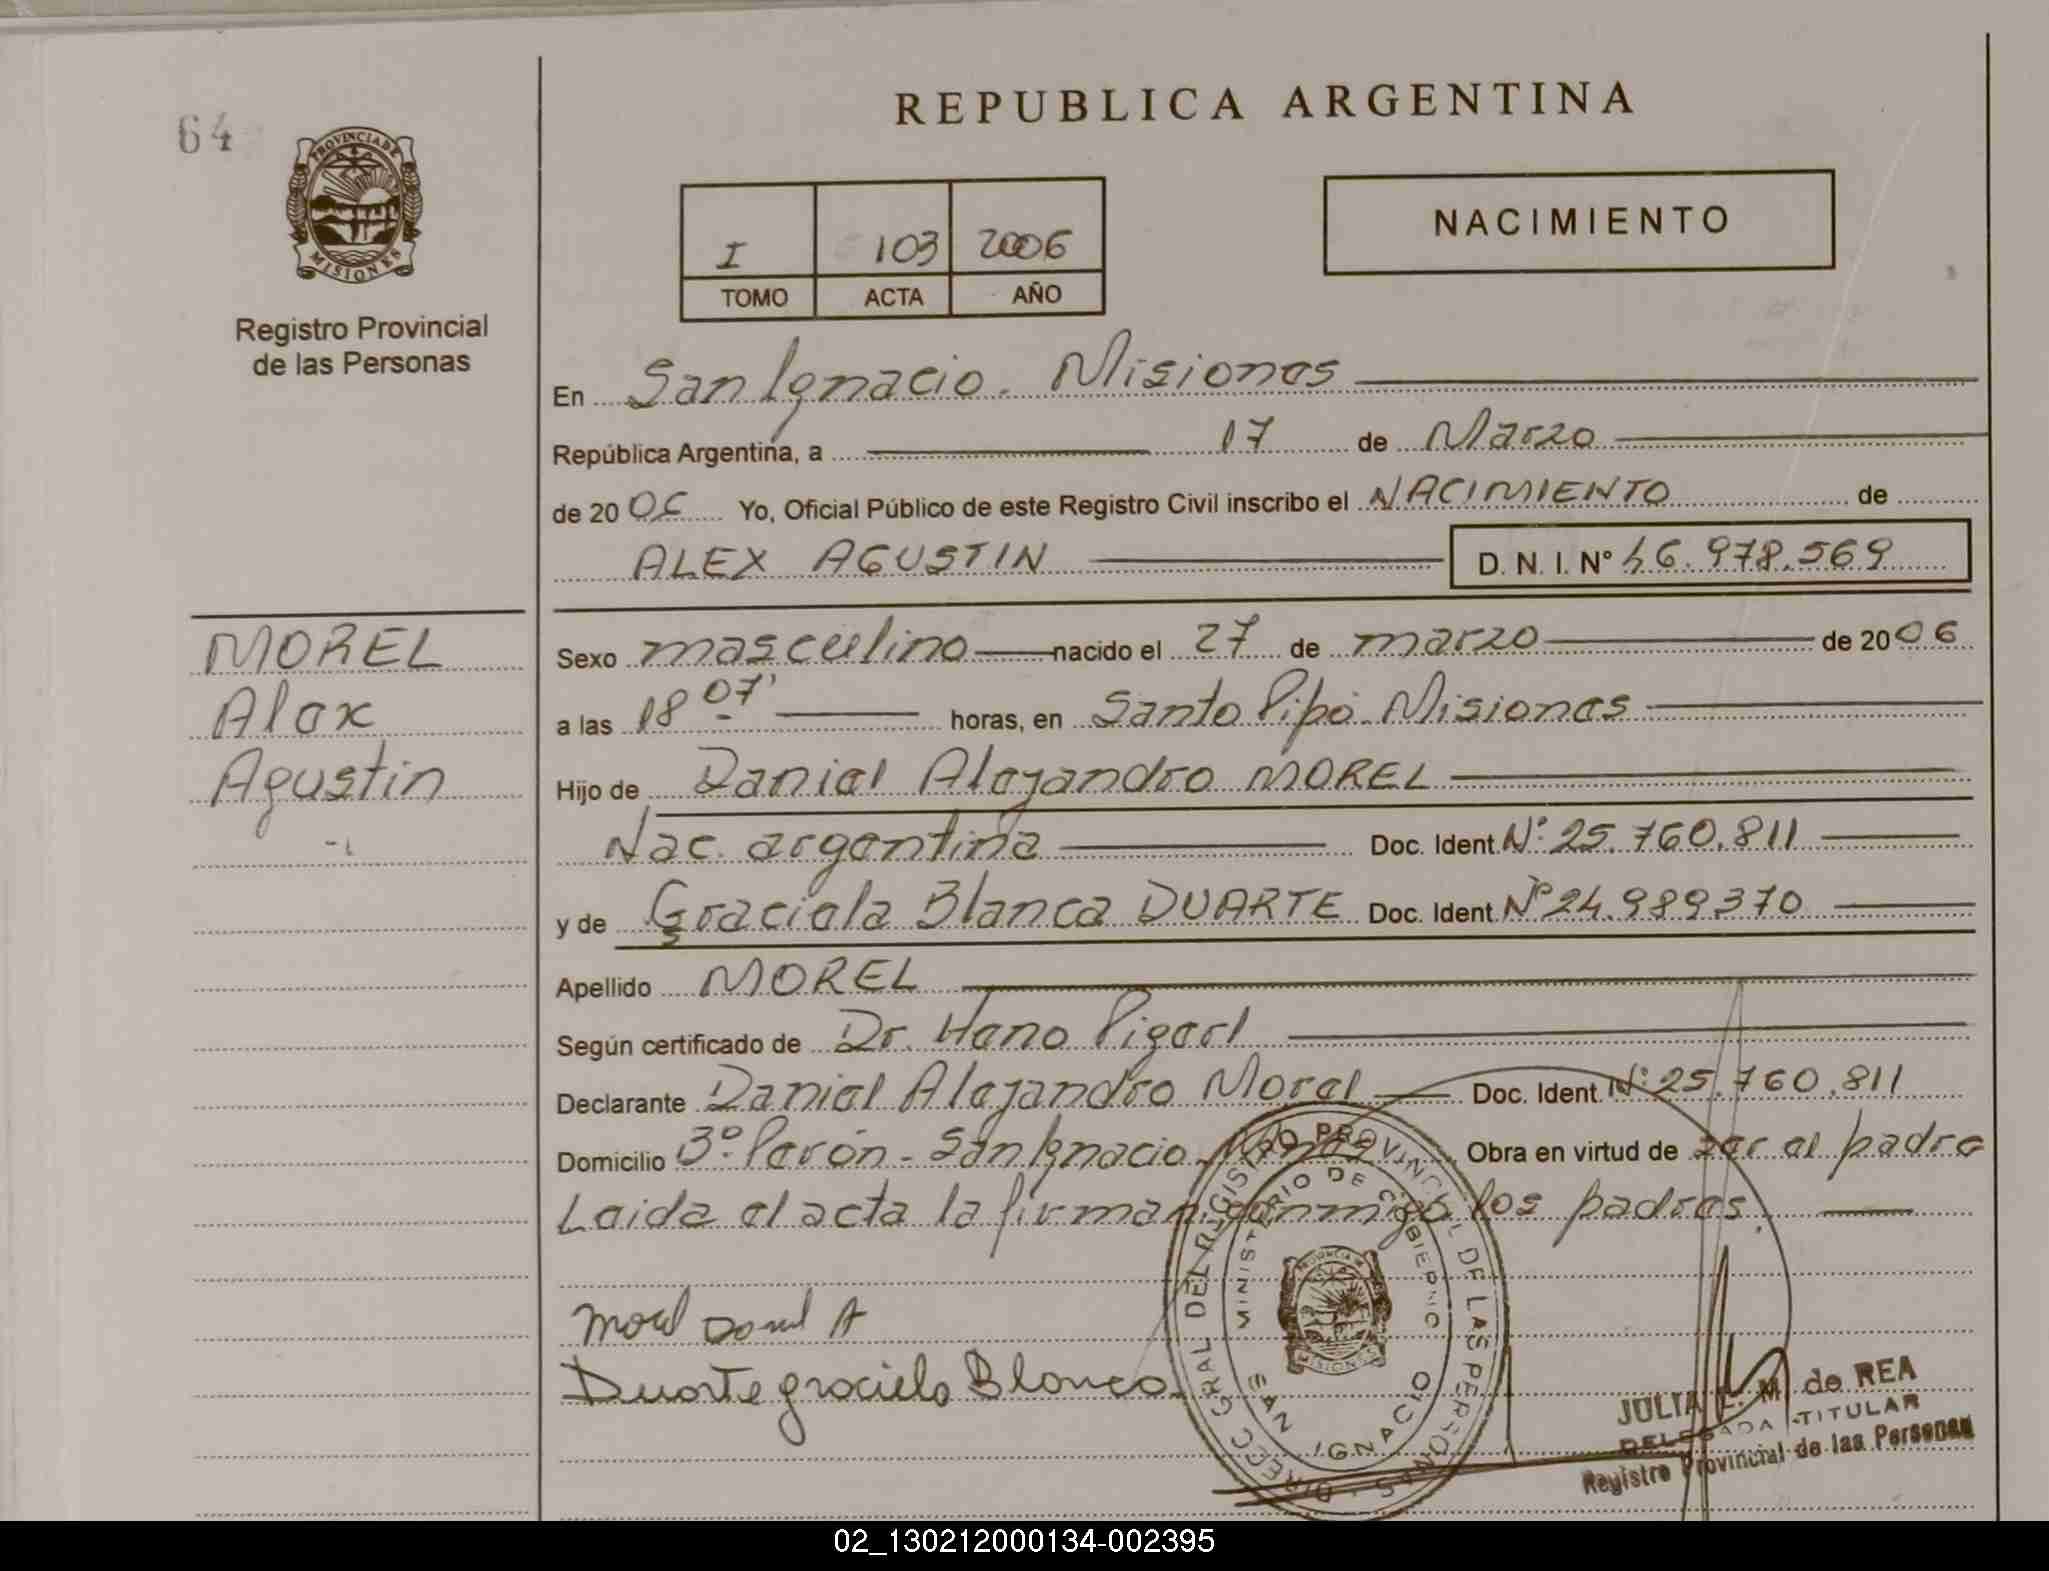 64
PROVINCIA DE
MISIONES
Registro Provincial
de las Personas
REPUBLICA ARGENTINA
I 103 2006
TOMO ACTA AÑO
NACIMIENTO
En San Ignacio. Misiones
República Argentina, a 17 de Marzo
de 20 06 Yo, Oficial Público de este Registro Civil inscribo el NACIMIENTO de
ALEX AGUSTIN D. N. I. N° 46.978.569
MOREL
Alex
Agustin
Sexo masculino nacido el 27 de marzo de 20 06
a las 18 07' horas, en Santo Pipó Misiones
Hijo de Daniel Alejandro MOREL
Nac. argentina Doc. Ident. Nº 25.760.811
y de Graciela Blanca DUARTE Doc. Ident. Nº 24.989.370
Apellido MOREL
Según certificado de Dr. Hano
Declarante Daniel Alejandro Morel Doc. Ident. Nº 25.760.811
Domicilio Bº Perón - San Ignacio Mnes Obra en virtud de ser el padre
Leida el acta la firman conmigo los padres.
Morel Daniel A
Duarte graciela Blanca
DIRECC GRAL DEL REGISTRO PROVINCIAL DE LAS PERSONAS
MINISTERIO DE GOBIERNO
PROVINCIA DE
MISIONES
SAN IGNACIO
JULIA E. M. de REA
DELEGADA TITULAR
Registro Provincial de las Personas
02_130212000134-002395